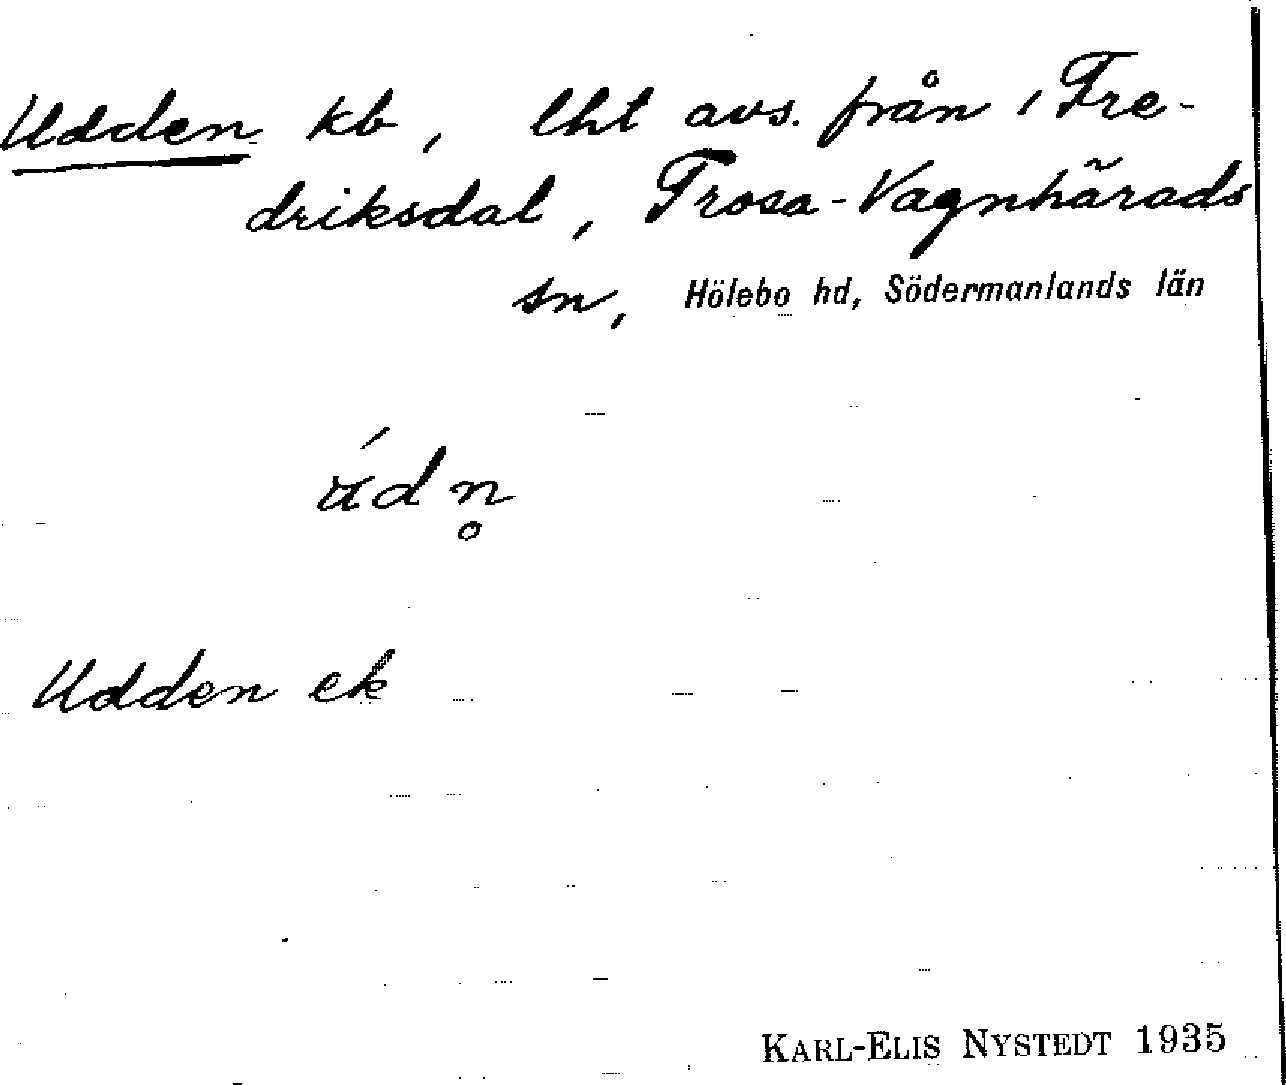 Udden kb, lht avs. från 1 Fre-
driksdal, Trosa-Vagnhärads
sn, Hölebo hd, Södermanlands län
ú̈dn̥
Udden ek
KARL-ELIS NYSTEDT 1935